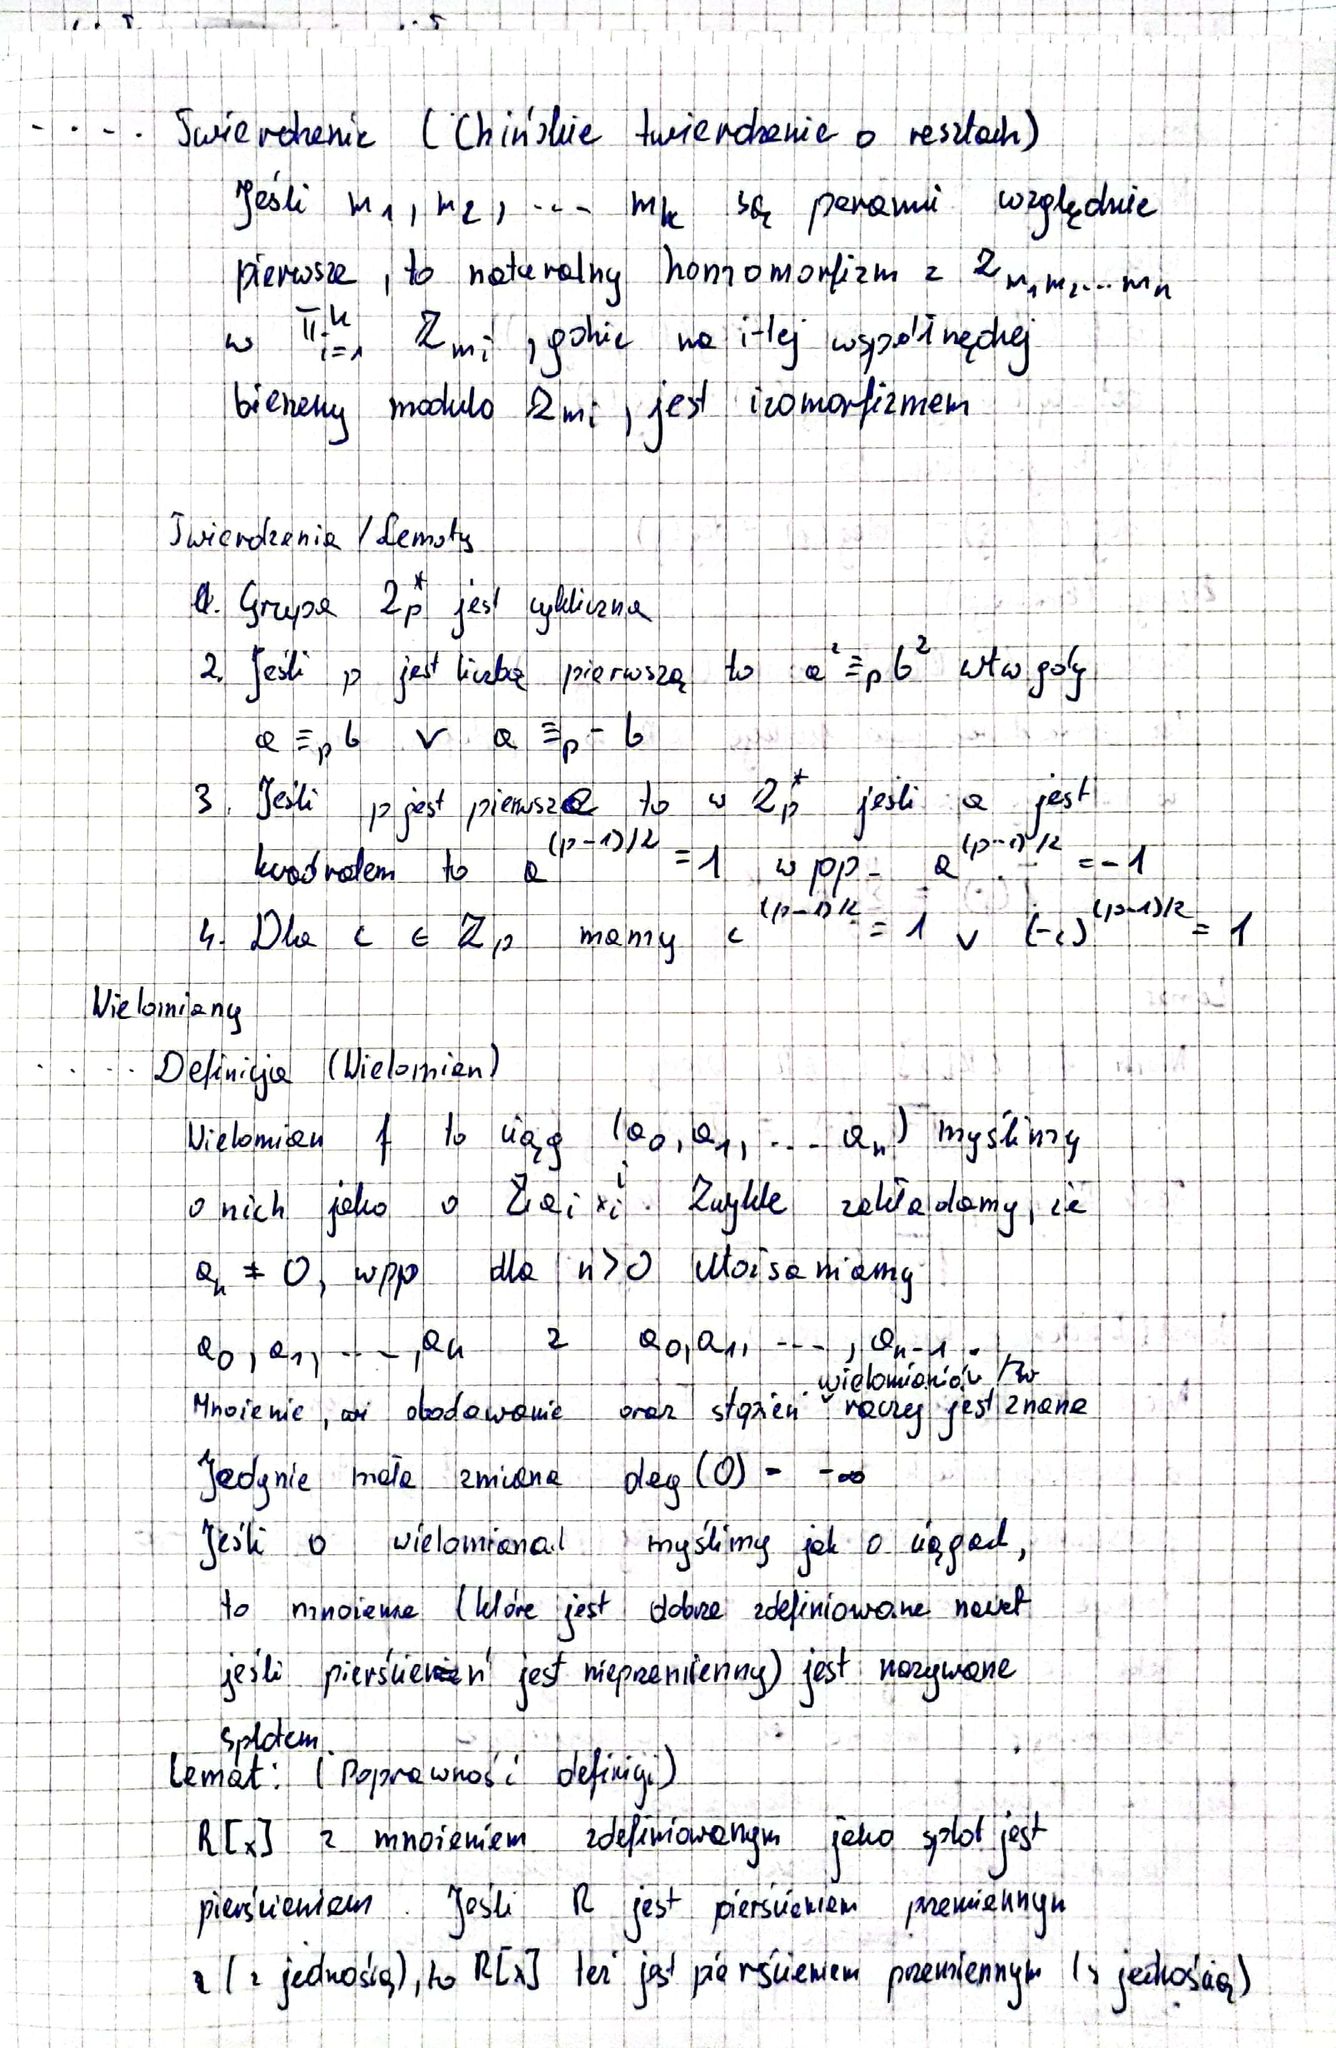 Twierdzenie (Chińskie twierdzenie o resztach)
Jeśli m₁, m₂, ... mₖ są parami względnie
pierwsze, to naturalny homomorfizm z Z_{m₁m₂...mₖ}
w Π_{i=1}^{k} Z_{mᵢ}, gdzie na i-tej współrzędnej
bierzemy modulo Z_{mᵢ}, jest izomorfizmem
Twierdzenia / Lematy
1. Grupa Z_p^* jest cykliczna
2. Jeśli p jest liczbą pierwszą to a² ≡_p b² wtw gdy
a ≡_p b ∨ a ≡_p -b
3. Jeśli p jest pierwsza to w Z_p^* jeśli a jest
kwadratem to a^{(p-1)/2} = 1 wpp. a^{(p-1)/2} = -1
4. Dla c ∈ Z_p mamy c^{(p-1)/2} = 1 ∨ (-c)^{(p-1)/2} = 1
Wielomiany
Definicja (Wielomian)
Wielomian f to ciąg (a₀, a₁, ... aₙ) myślimy
o nich jako o Σ aᵢ xᵢ^i. Zwykle zakładamy, że
aₙ ≠ 0, wpp dla n>0 utożsamiamy
a₀, a₁, ..., aₙ z a₀, a₁, ..., aₙ₋₁.
Mnożenie, dodawanie oraz stopień wielomianów raczej jest znane
Jedynie mała zmiana deg(0) = -∞
Jeśli o wielomianach myślimy jak o ciągach,
to mnożenie (które jest dobrze zdefiniowane nawet
jeśli pierścień jest nieprzemienny) jest nazywane
splotem.
Lemat: (Poprawność definicji)
R[x] z mnożeniem zdefiniowanym jako splot jest
pierścieniem. Jeśli R jest pierścieniem przemiennym
z (z jednością), to R[x] też jest pierścieniem przemiennym (z jednością)